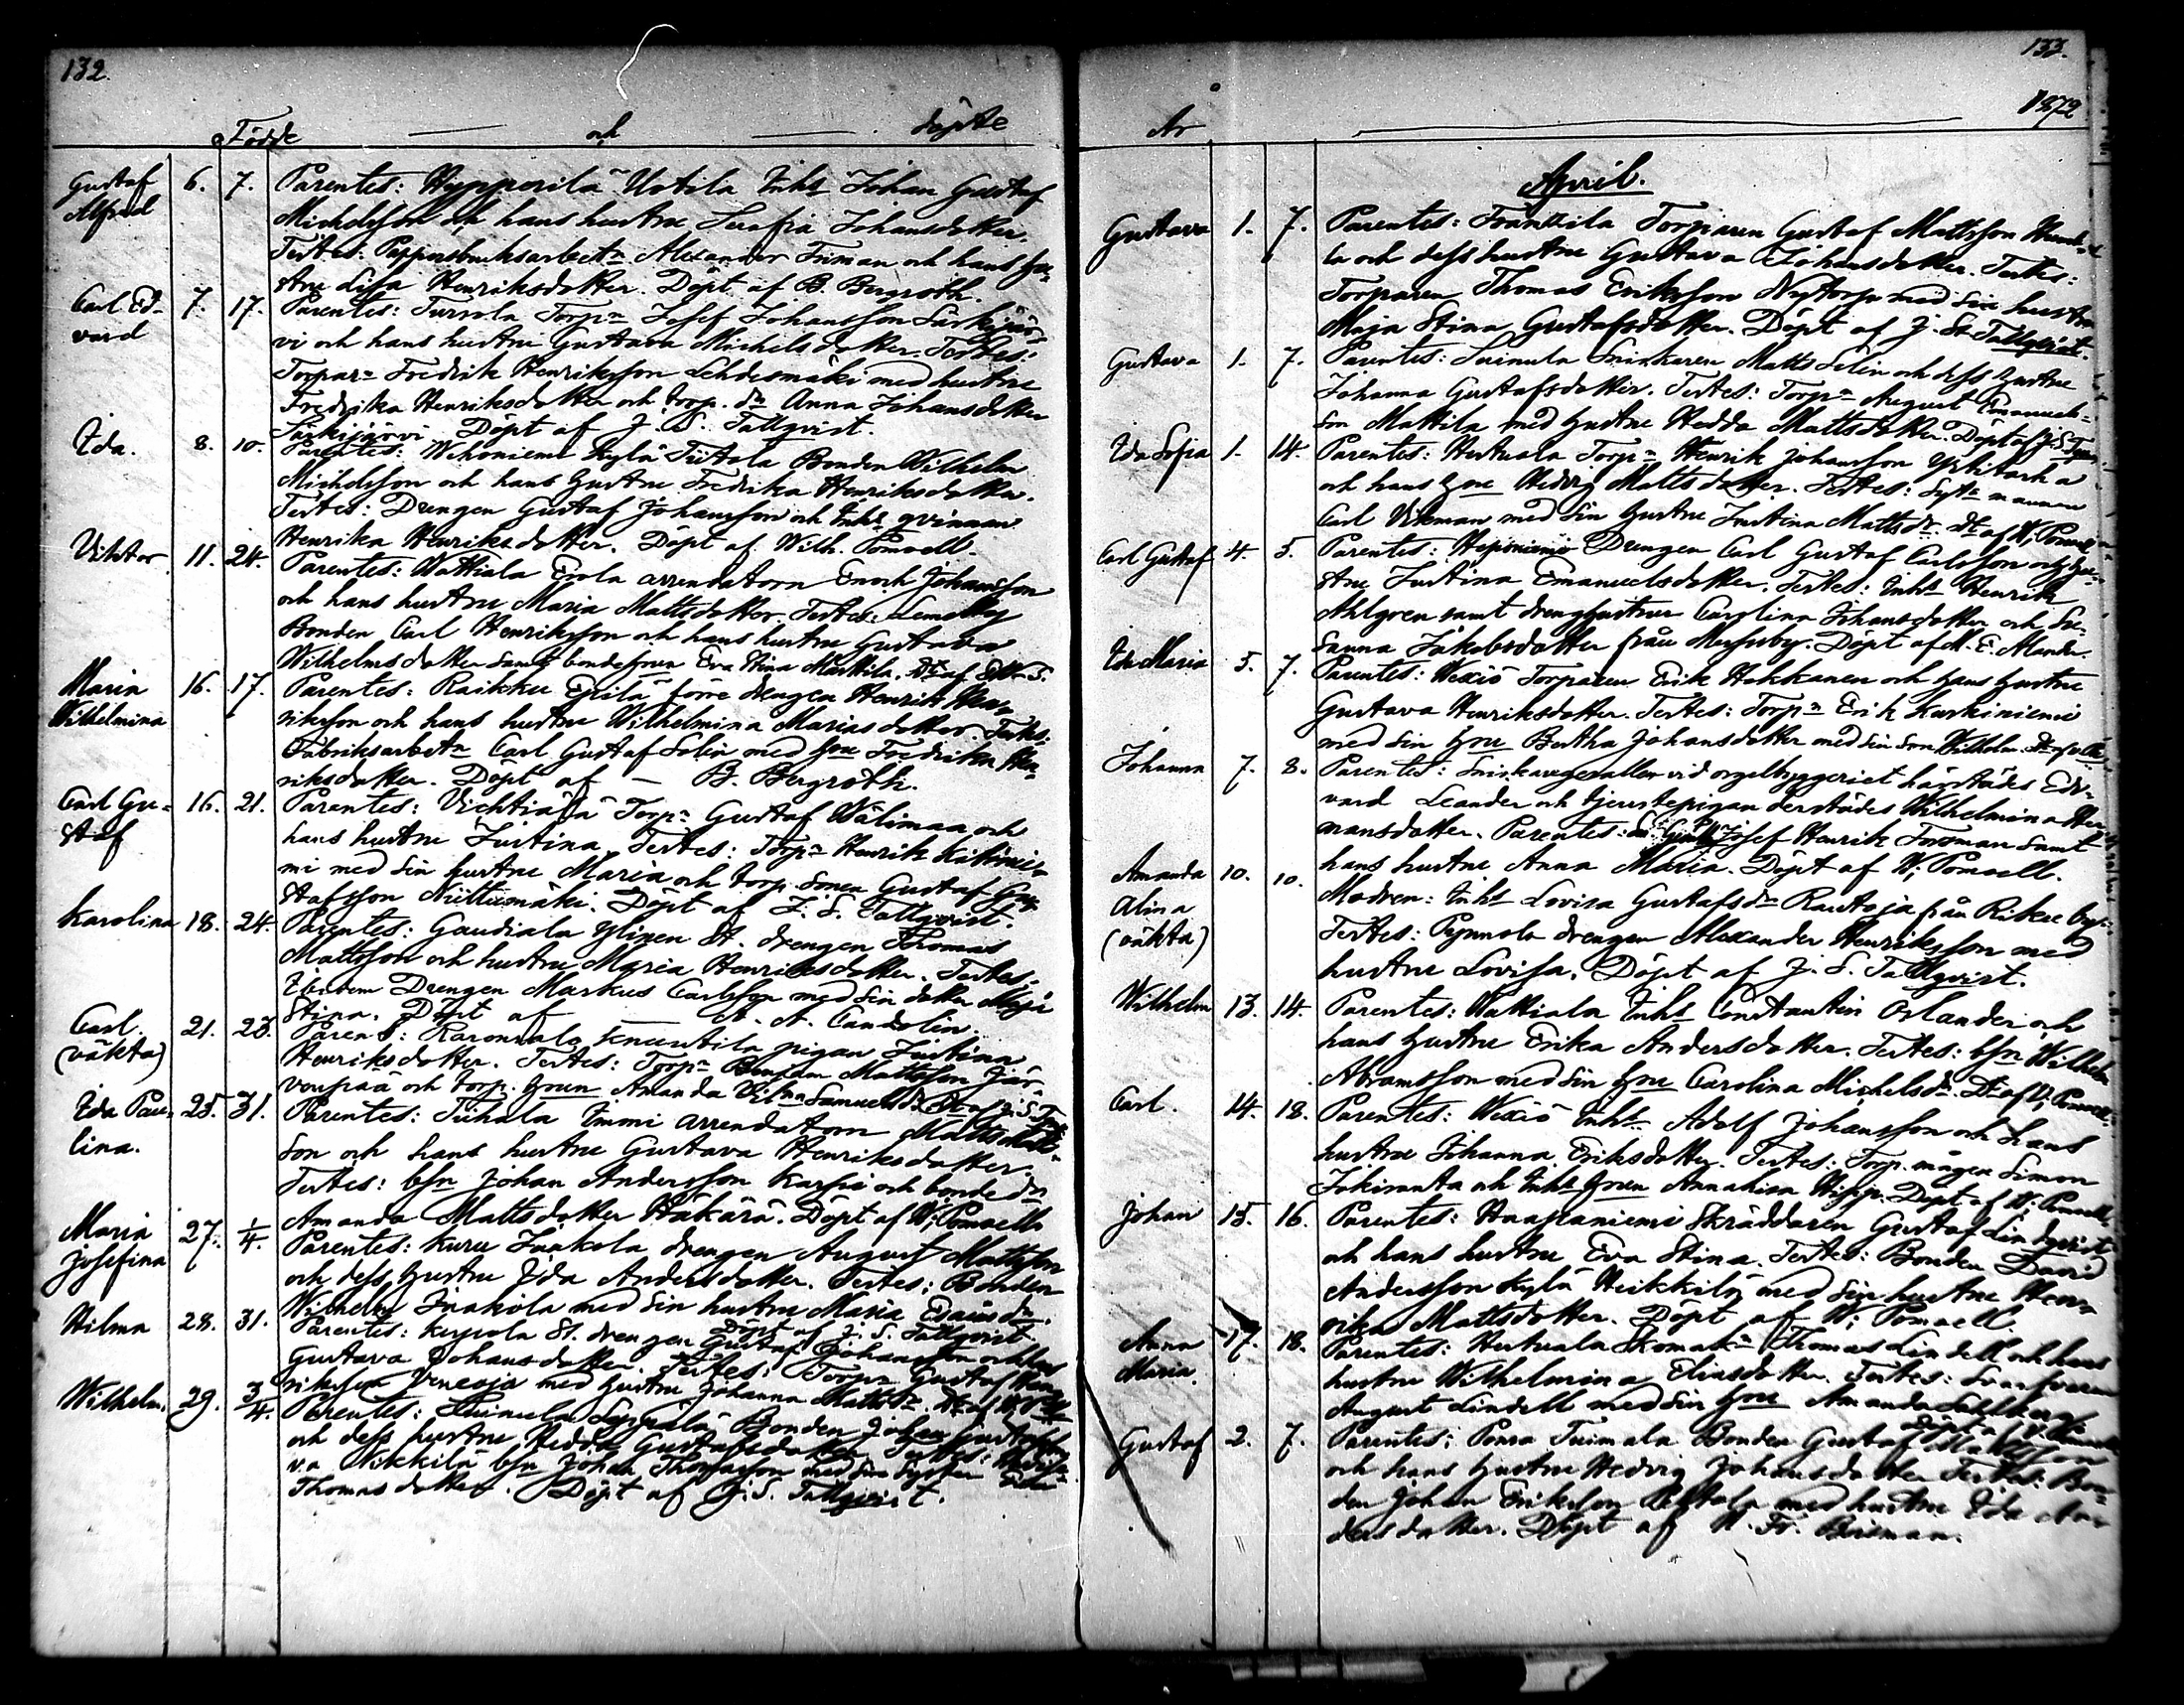 132.
Födde och döpte
Gustaf Alfred 6. 7. Parentes: Hyppörilä Uotila Inhs Johan Gustaf
Michelsson och hans hustru Serafia Johansdotter.
Testes: Pappersbruksarbetn Alexander Friman och hans hu-
stru Lisa Henriksdotter. Döpt af B. Bergroth.
Carl Ed-
vard 7. 17. Parentes: Tursola Torpn Josef Johansson Särkijär-
vi och hans hustru Gustava Michelsdotter. Testes:
Torparn Fredrik Henriksson Lehdesmäki med hustru
Fredrika Henriksdotter och torp. dn Anna Johansdotter
Särkijärvi. Döpt af J. S. Tallqvist.
Ida. 8. 10. Parentes: Wehoniemi Kylä Tiitola Bonden Wilhelm
Michelsson och hans hustru Fredrika Henriksdotter.
Testes: Drengen Gustaf Johansson och Inhs qvinnan
Henrika Henriksdotter. Döpt af Wilh. Pomoell.
Viktor 11. 24. Parentes: Wattiala Erola arrendatorn Enoch Johansson
och hans hustru Maria Mattsdotter. Testes:
Bonden Carl Henriksson och hans hustru Gustava
Wilhelmsdotter samt bondehrun Eva Stina Marttila. Dt af
Maria
Wilhelmina 16. 17. Parentes: Raikku Erilä förre drengen Henrik Hen-
riksson och hans hustru Wilhelmina Mariasdotter. Testes:
Fabriksarbetn Carl Gustaf Solin med hru Fredrika Hen-
riksdotter. Döpt af — B. Bergroth.
Carl Gu-
staf 16. 21. Parentes: Vichtiälä Torpn Gustaf Wälimaa och
hans hustru Justina. Testes: Torpn Henrik
mi med sin hustru Maria och torp. sonen Gustaf Gus-
tafsson Niittumäki. Döpt af J. S. Tallqvist.
Karolina 18. 24. Parentes: Gaudiala Ylinen St. drengen Thomas
Mattsson och hustru Maria Henriksdotter. Testes:
Ibidem Drengen Markus Carlsson med sin dotter Maja
Stina. Döpt af — A. A. Candolin.
Carl.
(oäkta) 21. 23. Parens: pigan Justina
Henriksdotter. Testes: Torpn Benjam Mattsson Jär-
venpää och torp. hrun Amanda Samuelsd.
Ida Pau-
lina. 25. 31. Parentes: Tiihala Immi arrendatorn Matts Matts-
son och hans hustru Gustava Henriksdotter.
Testes: bsn Johan Andersson Karppi och bonde dn
Amanda Mattsdotter Häkärä. Döpt af W. Pomoell
Maria
Josefina 27. 1/4. Parentes: Kuru Jaakola drengen August Mattsson
och dess hustru Ida Andersdotter. Testes: Bonden
Wilhelm Jaakola med sin hustru Maria
Döpt af J. S. Tallqvist
Hilma 28. 31. Parentes: St. drengen Gustaf Johansson och
Gustava Johansdotter. Testes: Torpn Gustaf Hen-
riksson Veneoja med hustru Johanna Mattsdn
Wilhelm 29. 3/4. Parentes: Bonden Johan Gustafsson
och dess hustru Hedda Gustafsdotter. Testes:
Nikkilä bsn Johan Thomasson med sin syster
Thomasdotter. Döpt af J. S. Tallqvist.
133.
År 1872
April.
Gustava 1. 7. Parentes: Franttila Torparen Gustaf Mattsson
la och dess hustru Gustava Johansdotter. Testes:
Torparen Thomas Eriksson Nytorp med sin hustru
Maja Stina Gustafsdotter. Döpt af J. S. Tallqvist.
Gustava 1. 7. Parentes: Suinula Snickaren Matts Selin och dess hustru
Johanna Gustafsdotter. Testes: Torpn August Emanuels-
son Mattila med hustru Hedda Mattsdotter. Döpt af
Ida Sofia 1. 14. Parentes: Hertuala Torpn Henrik Johansson
och hans hru Hedvig Mattsdotter. Testes: Sytn mannen
Carl Vikman med sin hustru Justina Mattsdr. Dt af W. Pomoell
Carl Gustaf 4. 5. Parentes: Haponiemi Drengen Carl Gustaf Carlsson och hu-
stru Justina Emanuelsdotter. Testes: Inhs Henrik
Ahlgren samt drenghustrur Carolina Johansdotter och Su-
sanna Jakobsdotter från Messuby. Döpt af M. E. Mander.
Ida Maria 5. 7. Parentes: Wexiö Torparen Erik Hakkanen och hans hustru
Gustava Henriksdotter. Testes: Torpn Erik Kurkiniemi
med sin hru Bertha Johansdotter med sin son Wilhelm.
Johanna 7. 8. Parentes: Snickaregesällen vid orgelbyggeriet härstädes Ed-
vard Leander och tjenstepigan derstädes Wilhelmina Her-
mansdotter. Parentes: Josef Henrik Forsman samt
hans hustru Anna Maria. Döpt af W. Pomoell.
Amanda
Alina
(oäkta) 10. 10. Modren: Inhs Lovisa Gustafsdn Rautoja från Rikku by.
Testes: Pynnola drengen Alexander Henriksson med
hustru Lovisa. Döpt af J. S. Tallqvist.
Wilhelm 13. 14. Parentes: Wattiala Inhs Constantin Orlander och
hans hustru Erika Andersdotter. Testes: bsn Wilhelm
Abramsson med sin hru Carolina Michelsdn. Dt af W. Pomoell.
Carl. 14. 18. Parentes: Wexiö Inhs Adolf Johansson och hans
hustru Johanna Eriksdotter. Testes: Torp. mågen Simon
Jokiranta och Inhs hrun Annalisa Hipp. Döpt af W. Pomoell
Johan 15. 16. Parentes: Haapaniemi Skräddaren Gustaf Lindqvist
och hans hustru Eva Stina. Testes: Bonden David
Andersson Kylä Heikkilä med sin hustru Hen-
rika Mattsdotter. Döpt af W. Pomoell.
Anna
Maria. 17. 18. Parentes: Hertuala Skomakn Thomas Lindell och hans
hustru Wilhelmina Eliasdotter. Testes:
August Lindell med sin hru Amanda
Döpt af W. Pomoell
Gustaf 2. 7. Parentes: Ponsa Tuimala Bonden Gustaf Mattsson
och hans hustru Hedvig Johansdotter. Testes: Bon-
den Johan Eriksson med hustru Ida An-
dersdotter. Döpt af K. Fr. Brisman.